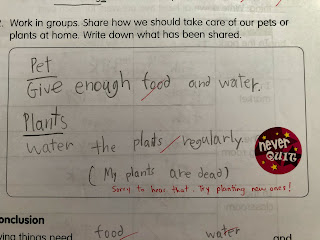 . Work in groups. Share how we should take care of our pets or
plants at home. Write down what has been shared.
Pet
Give enough food and water.
Plants
Water the plats regularly.
never
QUIT
( My plants are dead)
Sorry to hear that. Try planting new ones!
onclusion
ving things need food water and